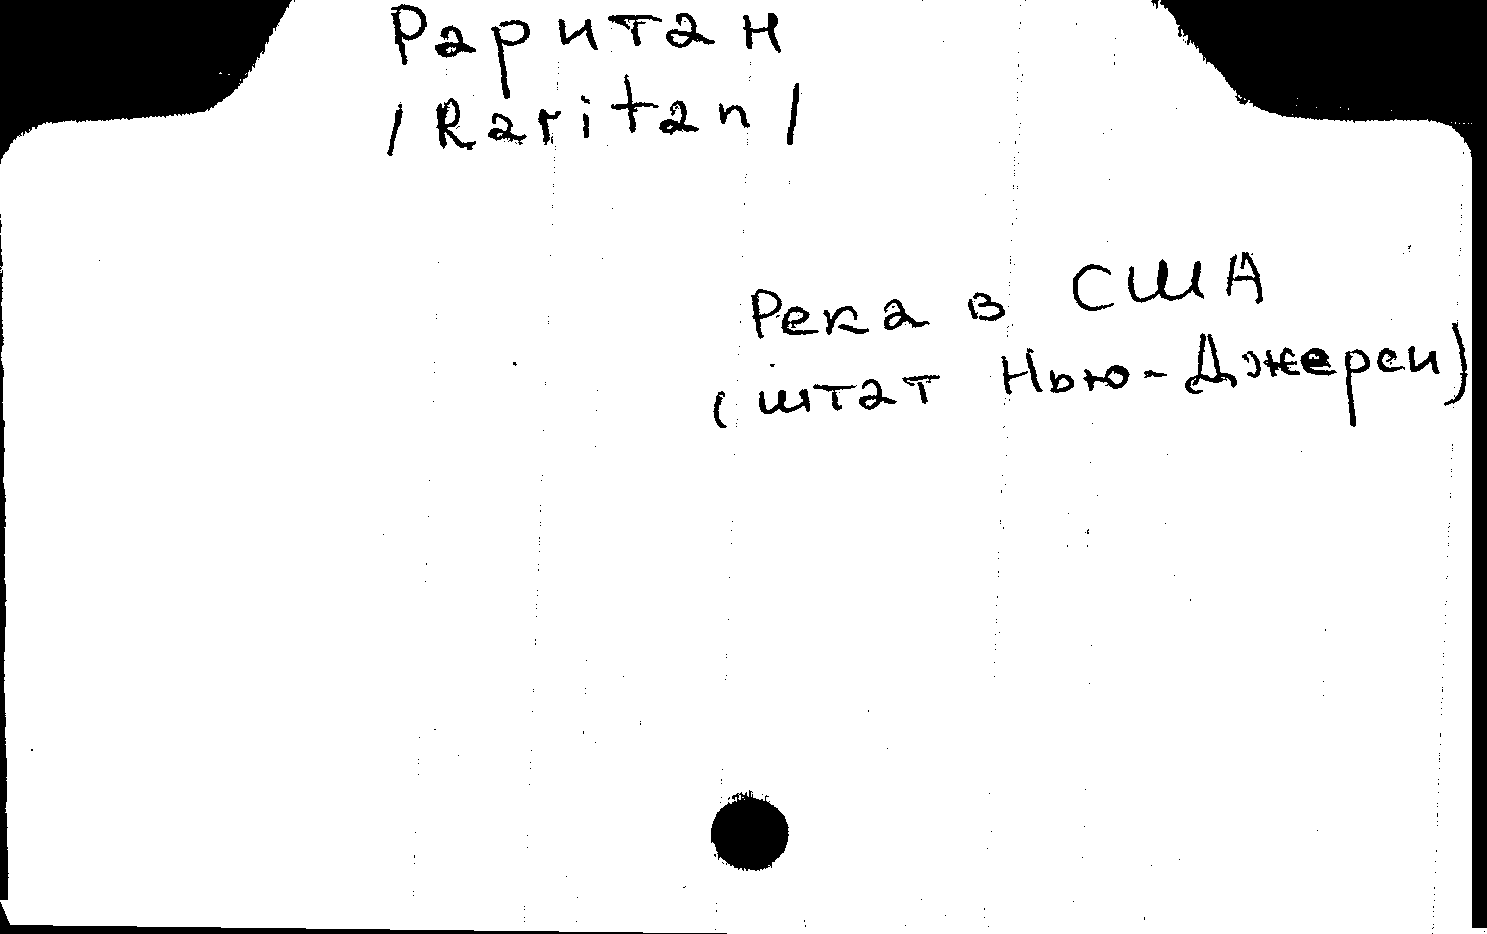 Раритан
/Raritan/
Река в США
(штат Нью-Джерси)